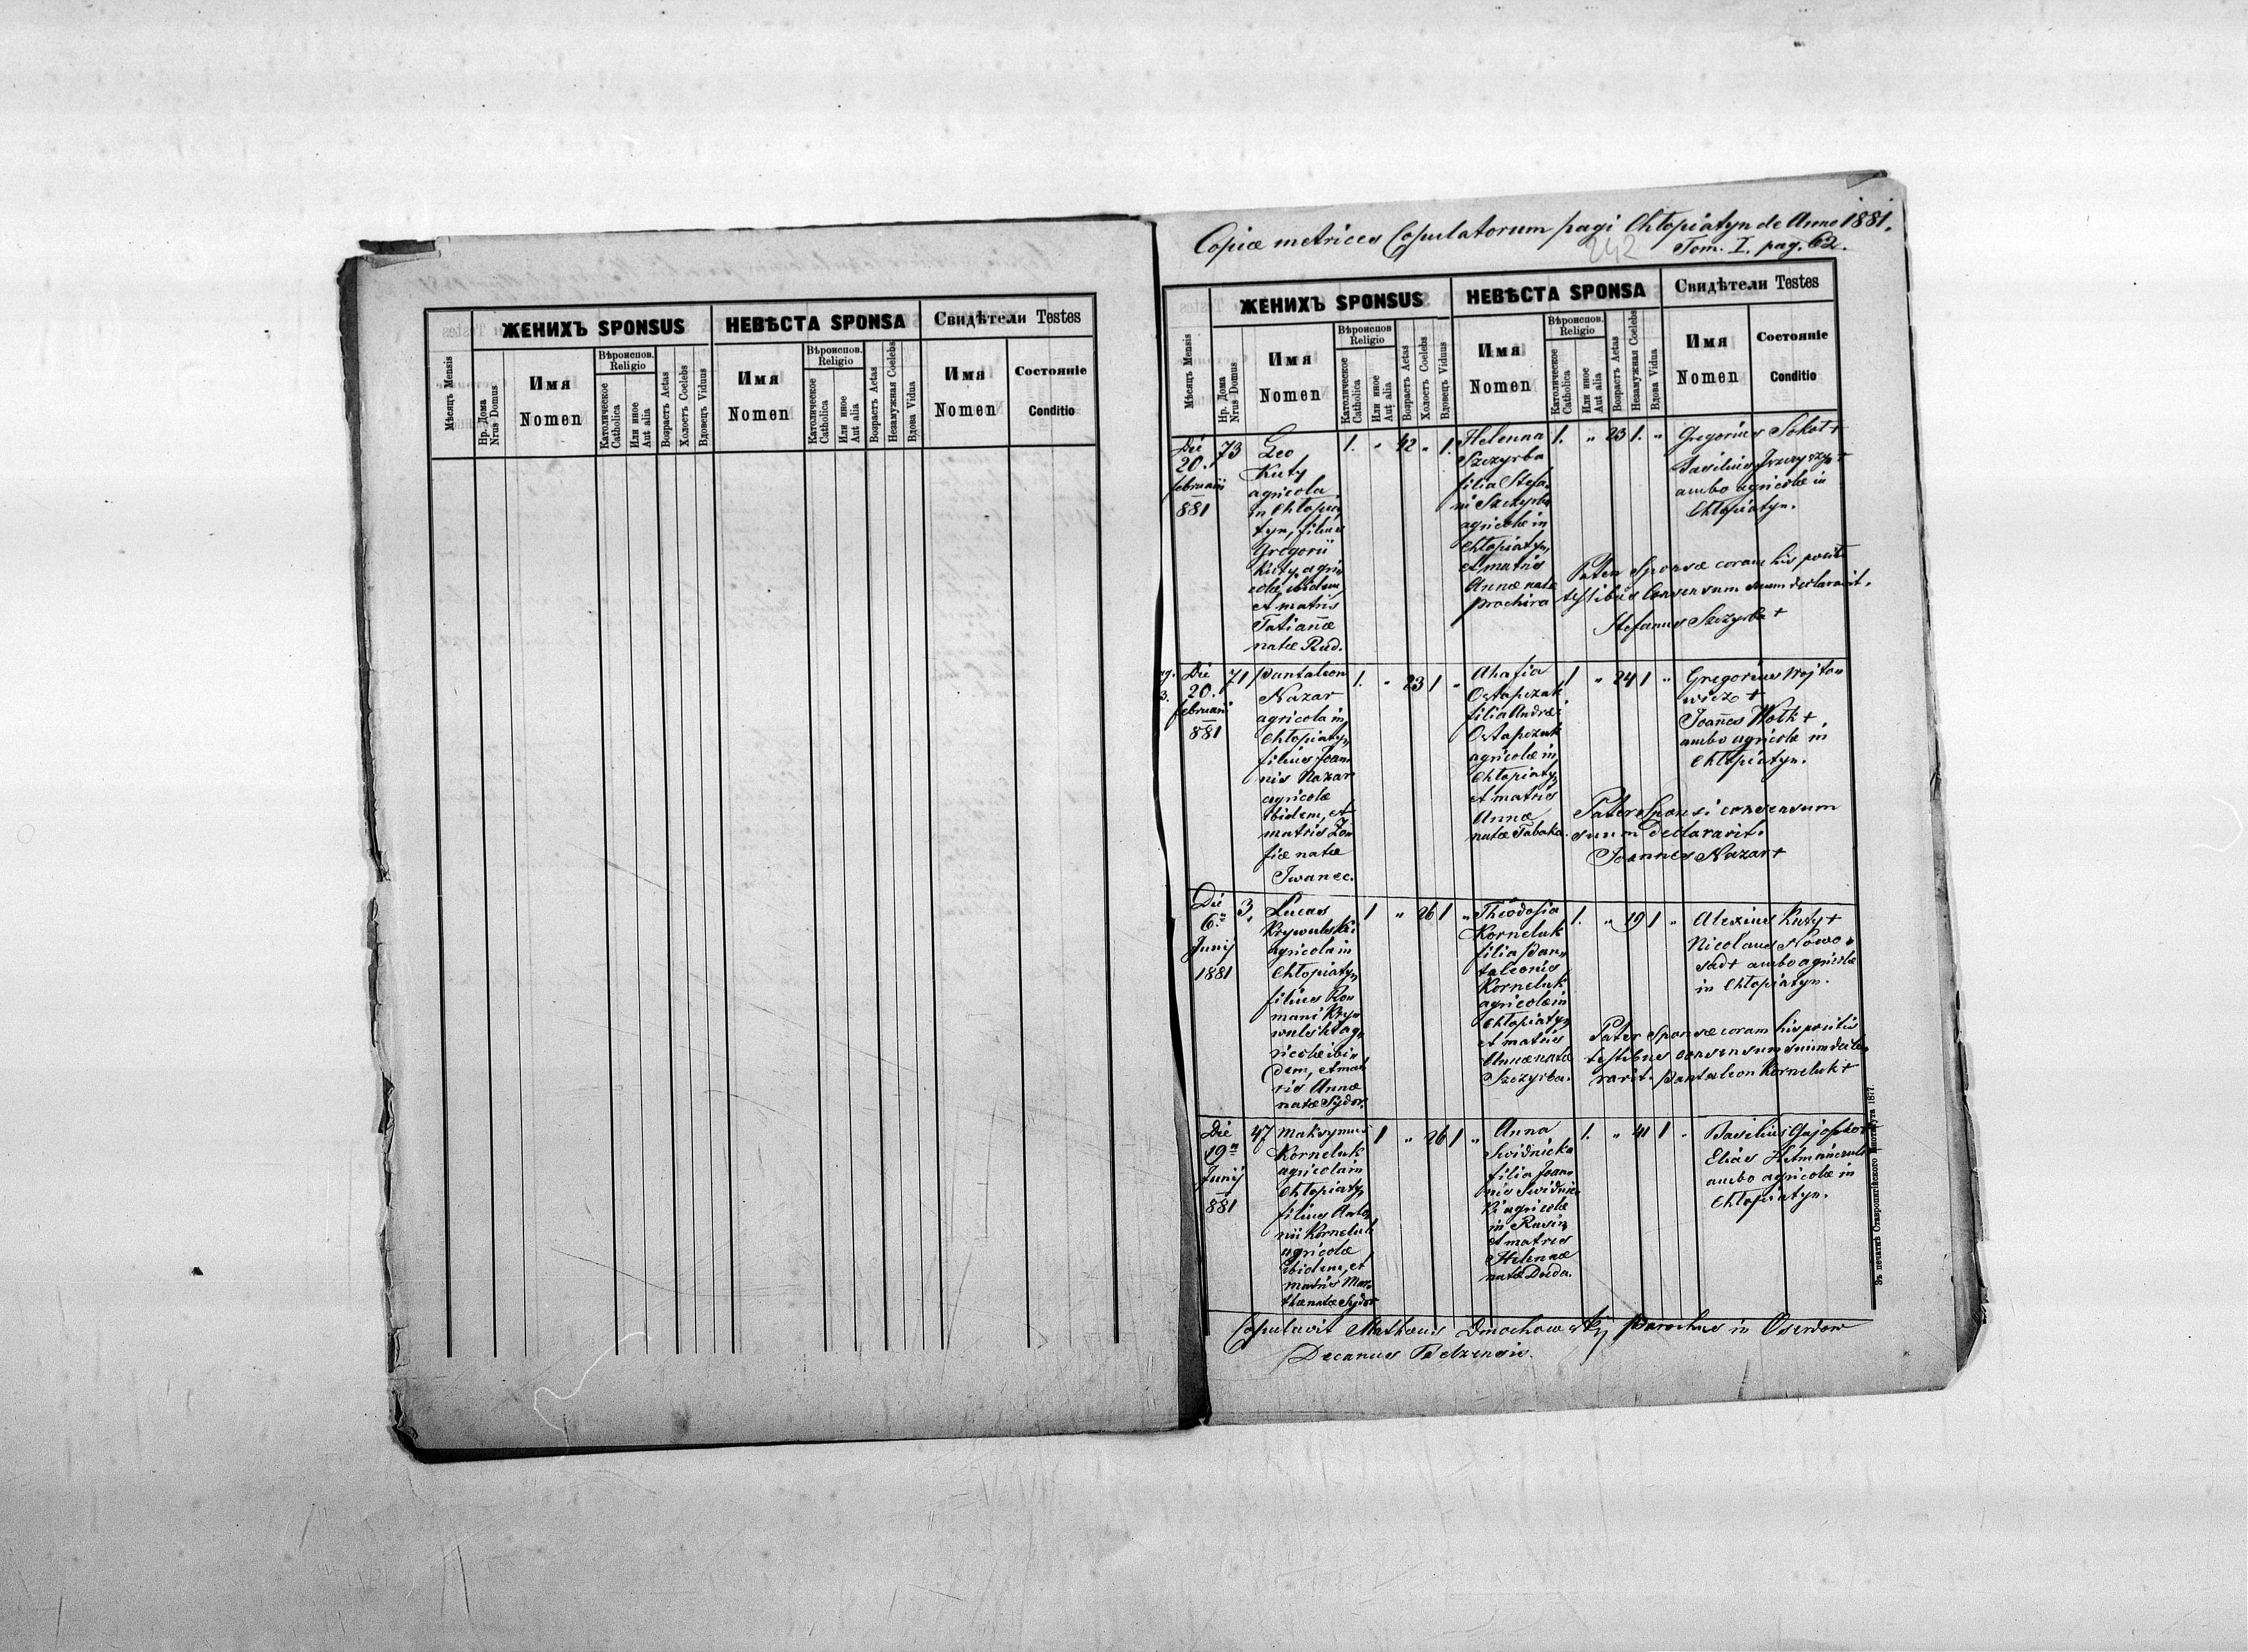 Мѣсяцъ Mensis
ЖЕНИХЪ SPONSUS
НЕВѢСТА SPONSA
Свидѣтели Testes
Нр. Дома
Nrus Domus
Имя
Nomen
Вѣроиспов.
Religio
Католическое
Catholica
Или иное
Aut alia
Возрастъ Aetas
Холостъ Coelebs
Вдовецъ Viduus
Имя
Nomen
Вѣроиспов.
Religio
Католическое
Catholica
Или иное
Aut alia
Возрастъ Aetas
Незамужная Coelebs
Вдова Vidua
Имя
Nomen
Состоянiе
Conditio
Copiæ metrices Copulatorum pagi Chłopiatyn de Anno 1881.
242
Tom. I. pag. 62.
Мѣсяцъ Mensis
ЖЕНИХЪ SPONSUS
НЕВѢСТА SPONSA
Свидѣтели Testes
Нр. Дома
Nrus Domus
Имя
Nomen
Вѣроиспов
Religio
Католическое
Catholica
Или иное
Aut alia
Возрастъ Aetas
Холостъ Coelebs
Вдовецъ Viduus
Имя
Nomen
Вѣроиспов.
Religio
Католическое
Catholica
Или иное
Aut alia
Возрастъ Aetas
Незамужная Coelebs
Вдова Vidua
Имя
Nomen
Состоянiе
Conditio
Die
20.
februarii
881
73
Leo
Kuty
agricola
in Chłopia
tyn, filius
Gregorii
Kuty agri
colæ ibidem,
et matris
Tatiannæ
natæ Rud.
1. " 42 " 1.
Helenna
Szczyrba
filia Stefa
ni Szczyrba
agricolæ in
Chłopiatyn,
et matris
Annæ natæ
Prochira
1. " 23 1. "
Gregorius Sokot +
Basilius +
ambo agricolæ in
Chłopiatyn.
Pater Sponsæ coram his positis
testibus Consensum suum declaravit.
Stefanus Szczyrba +
ag.
3.
Die
20.
februarii
881
71
Pantaleon
Nazar
agricola in
Chłopiatyn
filius Joan
nis Nazar
agricolæ
ibidem, et
matris Zo
fiæ natæ
Iwanec.
1. " 23 1 "
Ahafia
Ostapczuk
filia Andreæ
Ostapczuk
agricolæ in
Chłopiatyn
et matris
Annæ
natæ Tabaka.
1 " 24 1 "
Gregorius Wojto
wicz +
Joannes Wołk +
ambo agricolæ in
Chłopiatyn.
Pater Sponsi consensum
suum declaravit.
Joannes Nazar +
Die
6a
Junij
1881
3.
Lucas
Krywulski
agricola in
Chłopiatyn
filius Ro
mani Kry
wulski ag
ricolæ ibi
dem, et ma
tris Annæ
natæ Sydor.
1 " 26 1 "
Theodosia
Korneluk
filia Pan
taleonis
Korneluk
agricolæ in
Chłopiatyn
et matris
Annæ natæ
Szczyrba.
1. " 19 1 "
Alexius Kuty +
Nicolaus Nowo
sad + ambo agricolæ
in Chłopiatyn.
Pater Sponsæ coram his positis
testibus consensum suum decla
ravit. Pantaleon Korneluk +
Die
19a
Junij
881
47
Maksymus
Korneluk
agricola in
Chłopiatyn
filius Anto
nii Korneluk
agricolæ
ibidem, et
matris Mar
thæ natæ Sydor
1 " 26 1 "
Anna
Swidnicka
filia Joan
nis Swidnic
ki agricolæ
in Rusin
et matris
Helenæ
natæ Duda.
1. " 41 1 "
Basilius
Elias
ambo agricolæ in
Chłopiatyn.
Copulavit Mathæus Dmochowskij Parochus in Oserdow
Decanus Belzensis.
Зъ печатнѣ Ставропигiйского Института 1877.